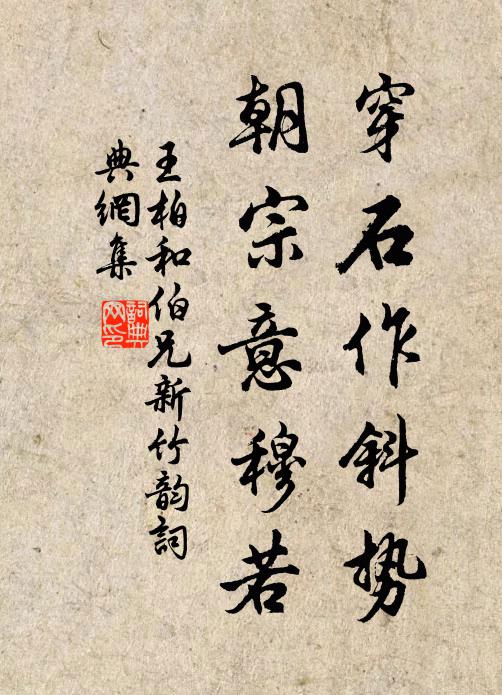 穿石作斜势
朝宗意穆若
王柏和伯兄新竹韵詞
典網集
詞典網印